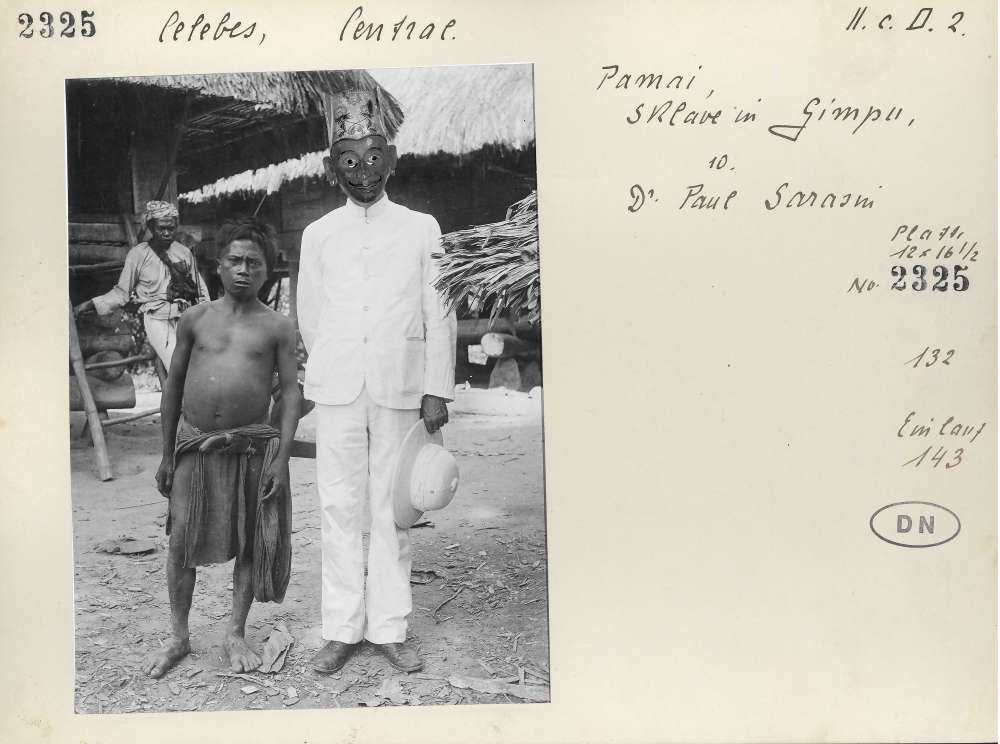 2325
Celebes, Central.
II. c. D. 2.
Pamai,
Sklave in Gimpu,
10.
Dr. Paul Sarasin
Platte
12 x 16 1/2
No. 2325
132
Einlauf
143
DN